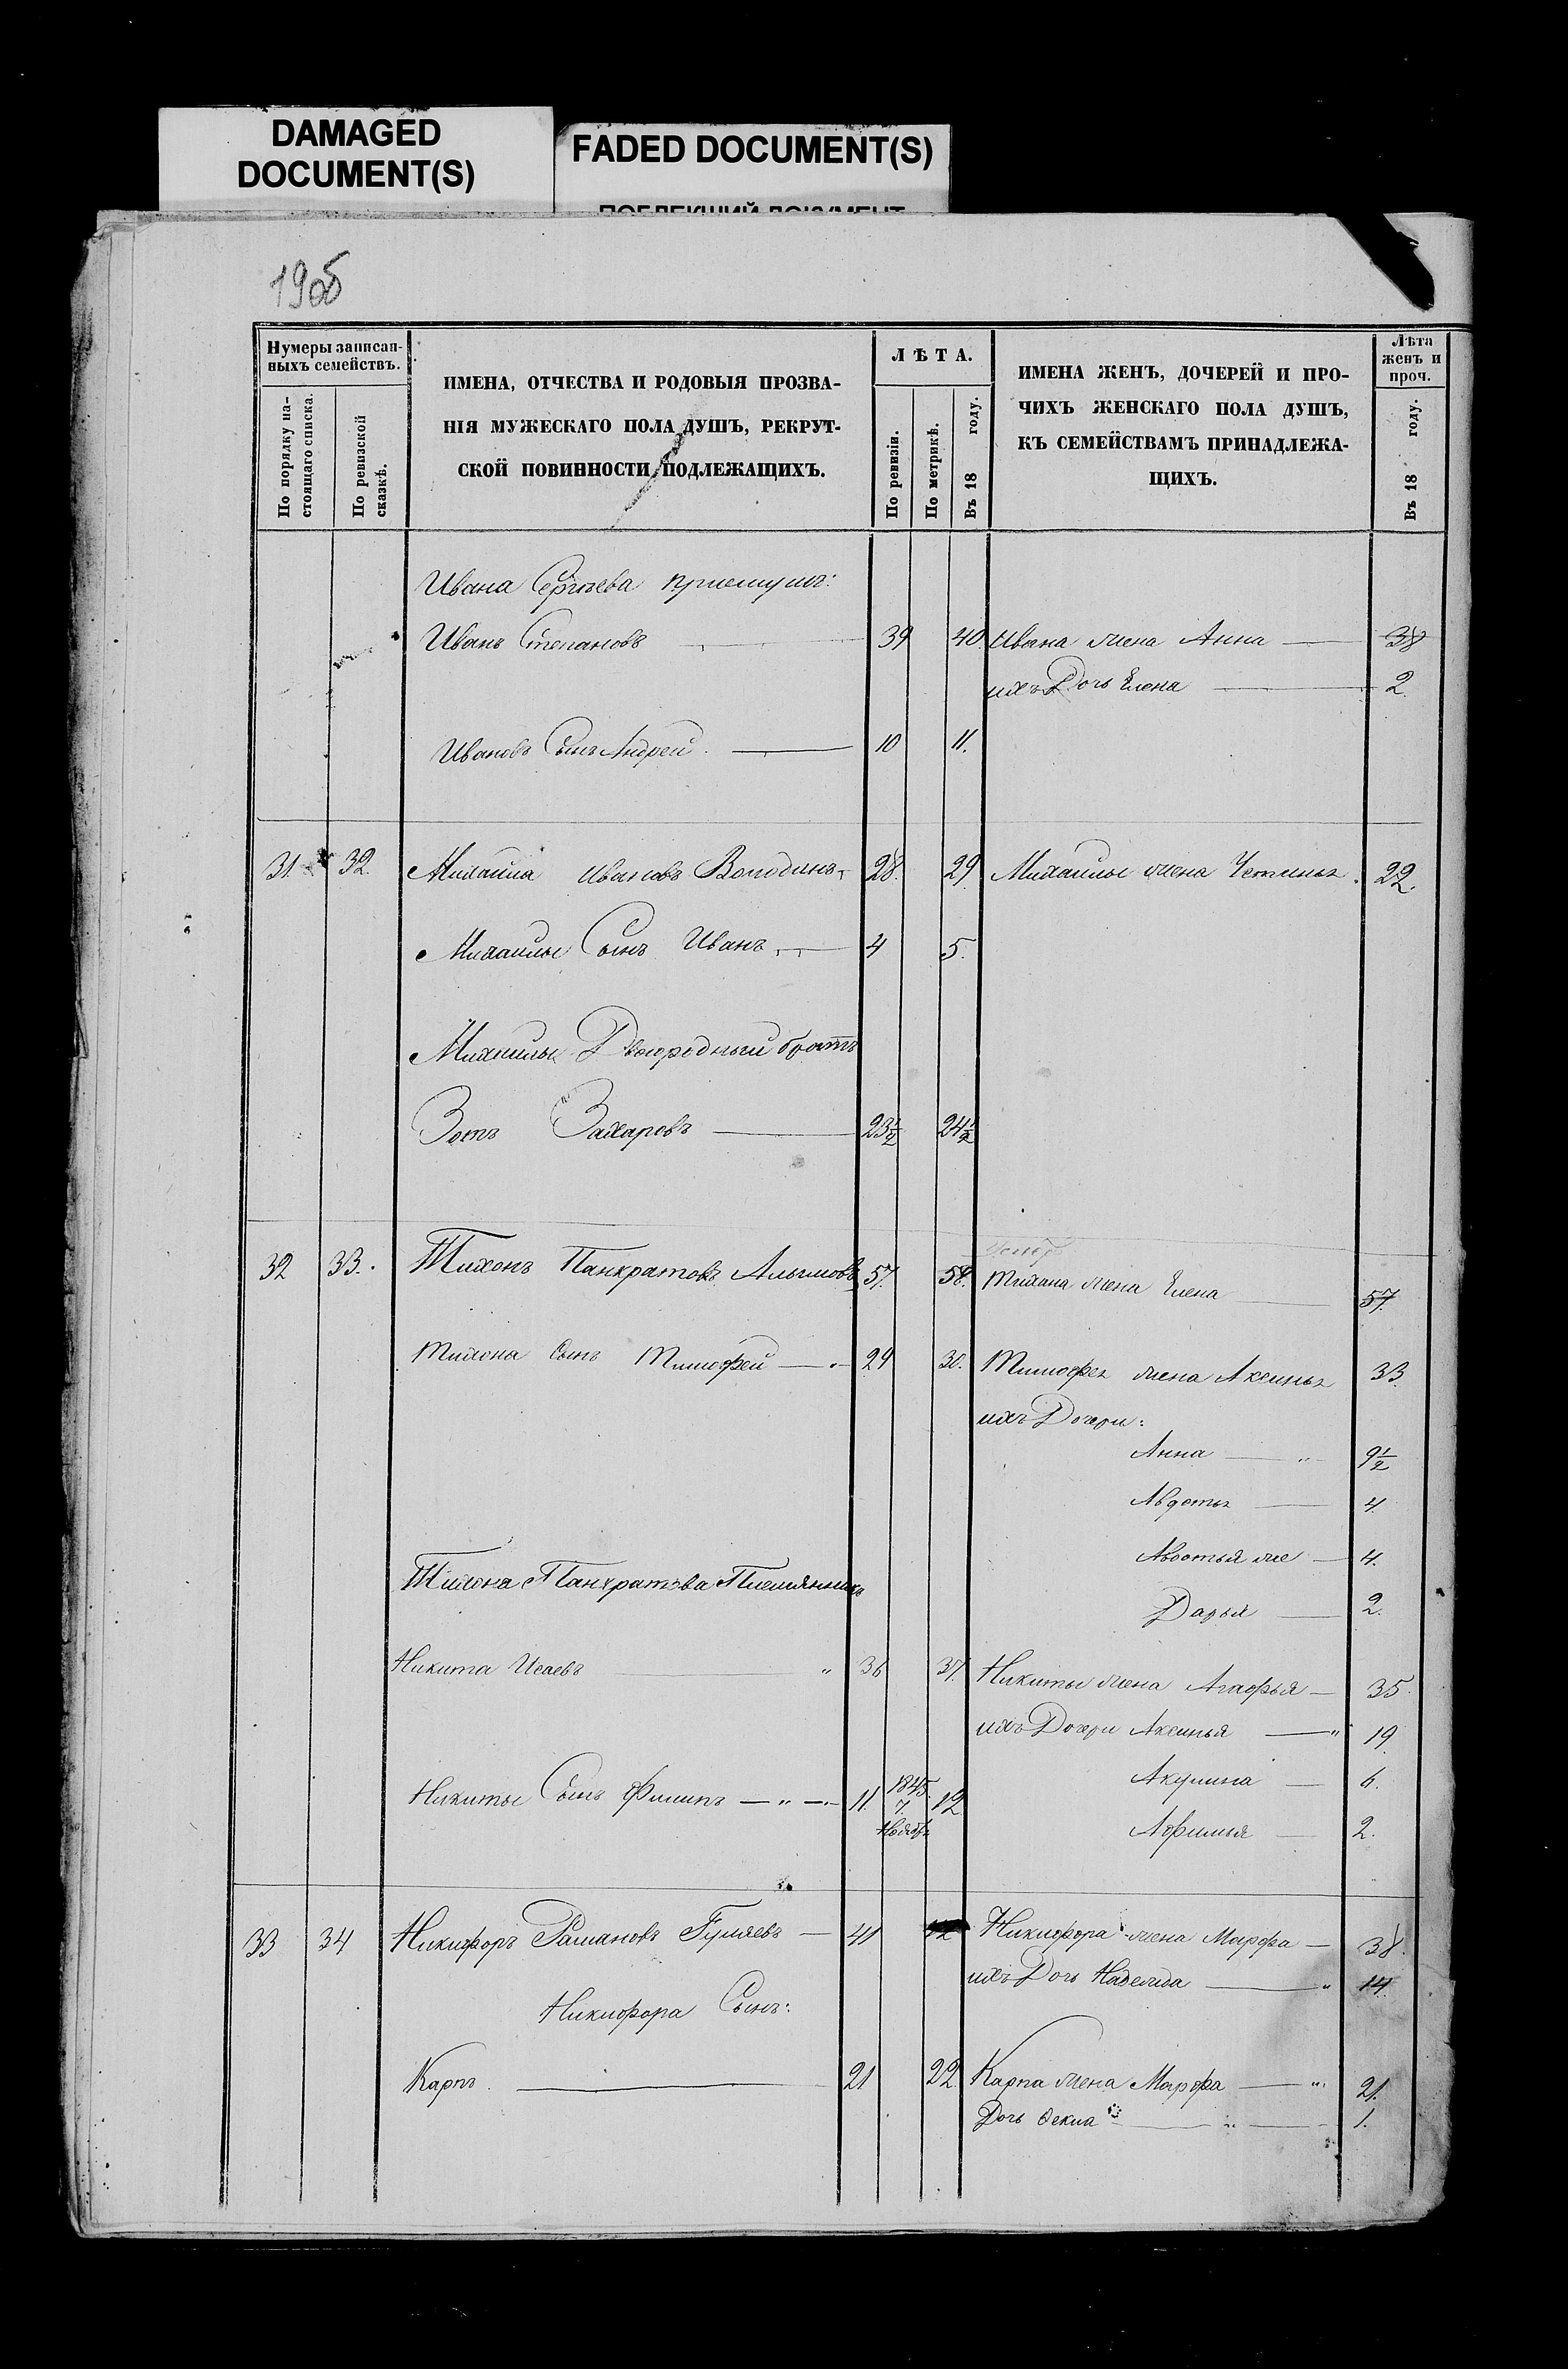 DAMAGED
DOCUMENT(S)
FADED DOCUMENT(S)
ПОБЛЕКШИЙ ДОКУМЕНТ
Нумеры записан-
ныхъ семействъ.
По порядку на-
стоящаго списка.
По ревизской
сказкѣ.
ИМЕНА, ОТЧЕСТВА И РОДОВЫЯ ПРОЗВА-
НІЯ МУЖЕСКАГО ПОЛА ДУШЪ, РЕКРУТ-
СКОЙ ПОВИННОСТИ ПОДЛЕЖАЩИХЪ.
ЛѢТА.
По ревизіи.
По метрикѣ.
Въ 18 году.
ИМЕНА ЖЕНЪ, ДОЧЕРЕЙ И ПРО-
ЧИХЪ ЖЕНСКАГО ПОЛА ДУШЪ,
КЪ СЕМЕЙСТВАМЪ ПРИНАДЛЕЖА-
ЩИХЪ.
Лѣта
женъ и
проч.
Въ 18 году.
Ивана Сергѣева
Иванъ Степановъ 39 40. Ивана жена Анна 38
ихъ Дочь Елена 2.
Ивановъ Сынъ Андрей. 10 11.
31. 32. Михаила Ивановъ Володинъ 28. 29. Михаилы жена 22.
Михаилы Сынъ Иванъ 4 5.
Михаилы Двоюродный братъ
Зотъ Захаровъ 23½ 24½
32 33. Тихонъ Панкратовъ Алымовъ 57. 58. Тихона жена Елена 57.
Тихона Сынъ Тимофей 29 30. Тимофея жена Аксинья 33.
ихъ Дочери:
Анна 9½
Авдотья 4.
Авдотья же 4.
Тихона Панкратова Племянникъ
Дарья 2.
Никита Исаевъ 36 37. Никиты жена Агафья 35.
ихъ Дочери Аксинья 19.
Акулина 6.
Никиты Сынъ Филипъ 11. 1845. 7. Ноябр. 12
Афимья 2.
33 34 Никифоръ Рамановъ Гуляевъ 41 42 Никифора жена Марфа 38.
ихъ Дочь Надежда 14.
Никифора Сынъ:
Карпъ. 21 22. Карпа жена Марфа 21.
Дочь Фекла 1.